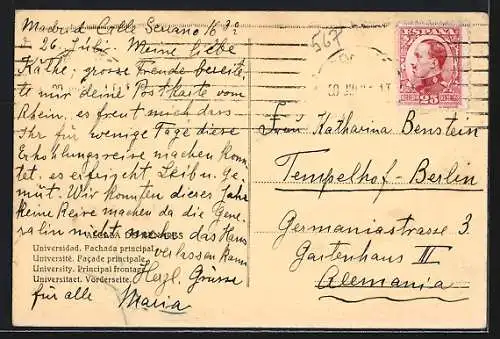 Madrid Calle Serrano 16 3º
26 Juli. Meine liebe
Käthe; grosse Freude bereite-
te mir deine Postkarte vom
Rhein, es freut mich dass
Ihr für wenige Tage diese
Erhohlungsreise machen konn-
tet. es erfrischt Leib u. Ge-
müt. Wir konnten dieses Jahr
keine Reise machen da die Gene-
ralin nicht das Haus
verlassen kann
Herzl. Grüsse
für alle Maria
ALCALÁ DE HENARES
Universidad. Fachada principal.
Université. Façade principale.
University. Principal frontage.
Universitaet. Vorderseite.
567
ESPAÑA
CORREOS 25 CENTIMOS
Frau Katharina Benstein
Tempelhof-Berlin
Germaniastrasse 3
Gartenhaus III
Alemania